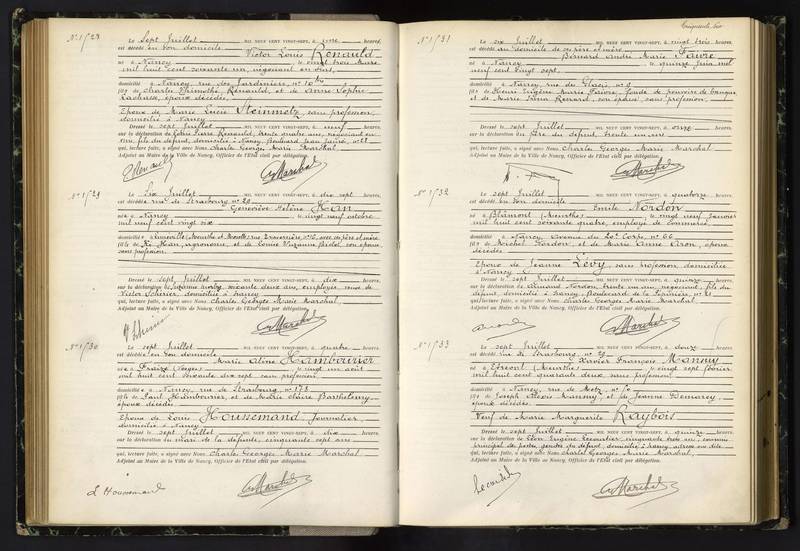 N° 1/28
Le Sept Juillet MIL NEUF CENT VINGT-SEPT, à heures,
est décédé en son domicile Victor Louis Renauld
né à Nancy le vingt trois Mars
mil huit cent soixante un, négociant en vins,
domicilié à Nancy, rue des Jardiniers, n° 10 bis
fils de Charles Thimothé Renauld, et de Anne Sophie
époux décédés
Epoux de Marie Lucie Steinmetz, sans profession,
domiciliée à Nancy
Dressé le sept Juillet MIL NEUF CENT VINGT-SEPT, à neuf heures,
sur la déclaration de Pierre Renauld, trente quatre ans, négociant en
vins, fils du défunt, domicilié à Nancy, Boulevard Jean Jaurès, n°
qui, lecture faite, a signé avec Nous Charles Georges Marie Marchal
Adjoint au Maire de la Ville de Nancy, Officier de l'Etat civil par délégation.
Renauld Marchal
N° 1/29
Le Six Juillet MIL NEUF CENT VINGT-SEPT, à dix sept heures,
est décédée rue de Strasbourg n° 29
Geneviève Hélène Han
née à Nancy le vingt neuf octobre
mil neuf cent vingt six
domiciliée à Meurthe et Moselle, rue avec ses père et mère
fille de Han, agronome, et de Louise Suzanne son épouse
sans profession
Dressé le sept Juillet MIL NEUF CENT VINGT-SEPT, à dix heures,
sur la déclaration de soixante deux ans, employée, veuve de
Victor domiciliée à Nancy
qui, lecture faite, a signé avec Nous Charles Georges Marie Marchal
Adjoint au Maire de la Ville de Nancy, Officier de l'Etat civil par délégation.
Marchal
N° 1/30
Le sept Juillet MIL NEUF CENT VINGT-SEPT, à quatre heures,
est décédée en son domicile
Marie Aline Hambourier
née à Fraize (Vosges) le vingt un août
mil huit cent soixante dix sept sans profession
domiciliée à Nancy, rue de Strasbourg, n° 178
fille de Paul Hambourier et de Marie Claire Barthelemy,
époux décédés
Epouse de Louis Houssemand, journalier
domicilié à Nancy
Dressé le sept Juillet MIL NEUF CENT VINGT-SEPT, à dix heures,
sur la déclaration du mari de la défunte, cinquante sept ans
qui, lecture faite, a signé avec Nous Charles Georges Marie Marchal
Adjoint au Maire de la Ville de Nancy, Officier de l'Etat civil par délégation.
L Houssemand Marchal
N° 1/31
Le six Juillet MIL NEUF CENT VINGT-SEPT, à vingt trois heures,
est décédé au domicile de ses père et mère
Bernard André Marie Favre
né à Nancy le quinze Juin mil
neuf cent vingt sept
domicilié à Nancy, rue du Glacis, n° 9
fils de Henri Eugène Marie Favre, fondé de pouvoirs de banque
et de Marie Renard, son épouse, sans profession
Dressé le sept Juillet MIL NEUF CENT VINGT-SEPT, à onze heures,
sur la déclaration du père du défunt, trente un ans
qui, lecture faite, a signé avec Nous Charles Georges Marie Marchal
Adjoint au Maire de la Ville de Nancy, Officier de l'Etat civil par délégation.
Marchal
N° 1/32
Le sept Juillet MIL NEUF CENT VINGT-SEPT, à quatorze heures,
est décédé en son domicile
Emile Nordon
né à Blâmont (Meurthe) le vingt neuf Janvier
mil huit cent soixante quatre, employé de Commerce
domicilié à Nancy, Avenue du XXe Corps, n° 66
fils de Michel Nordon et de Marie Anne Aron, époux
décédés
Epoux de Jeanne Lévy sans profession domiciliée
à Nancy
Dressé le sept Juillet MIL NEUF CENT VINGT-SEPT, à quinze heures,
sur la déclaration de Armand Nordon, trente un ans, négociant, fils du
défunt, domicilié à Nancy, Boulevard de la Pépinière, n° 21
qui, lecture faite, a signé avec Nous Charles Georges Marie Marchal
Adjoint au Maire de la Ville de Nancy, Officier de l'Etat civil par délégation.
Marchal
N° 1/33
Le sept Juillet MIL NEUF CENT VINGT-SEPT, à douze heures,
est décédé rue de Strasbourg, n° 29
Xavier François Mansuy
né à (Meurthe) le vingt sept février
mil huit cent quarante deux, sans profession
domicilié à Nancy, rue de Metz, n°
fils de Joseph Alexis Mansuy, et de Jeanne Demarey,
époux décédés
Veuf de Marie Marguerite Raybois
Dressé le sept Juillet MIL NEUF CENT VINGT-SEPT, à quinze heures,
sur la déclaration de Léon Eugène cinquante trois ans, commis
principal des postes, gendre du défunt, domicilié à Nancy,
qui, lecture faite, a signé avec Nous Charles Georges Marie Marchal,
Adjoint au Maire de la Ville de Nancy, Officier de l'Etat civil par délégation.
Marchal